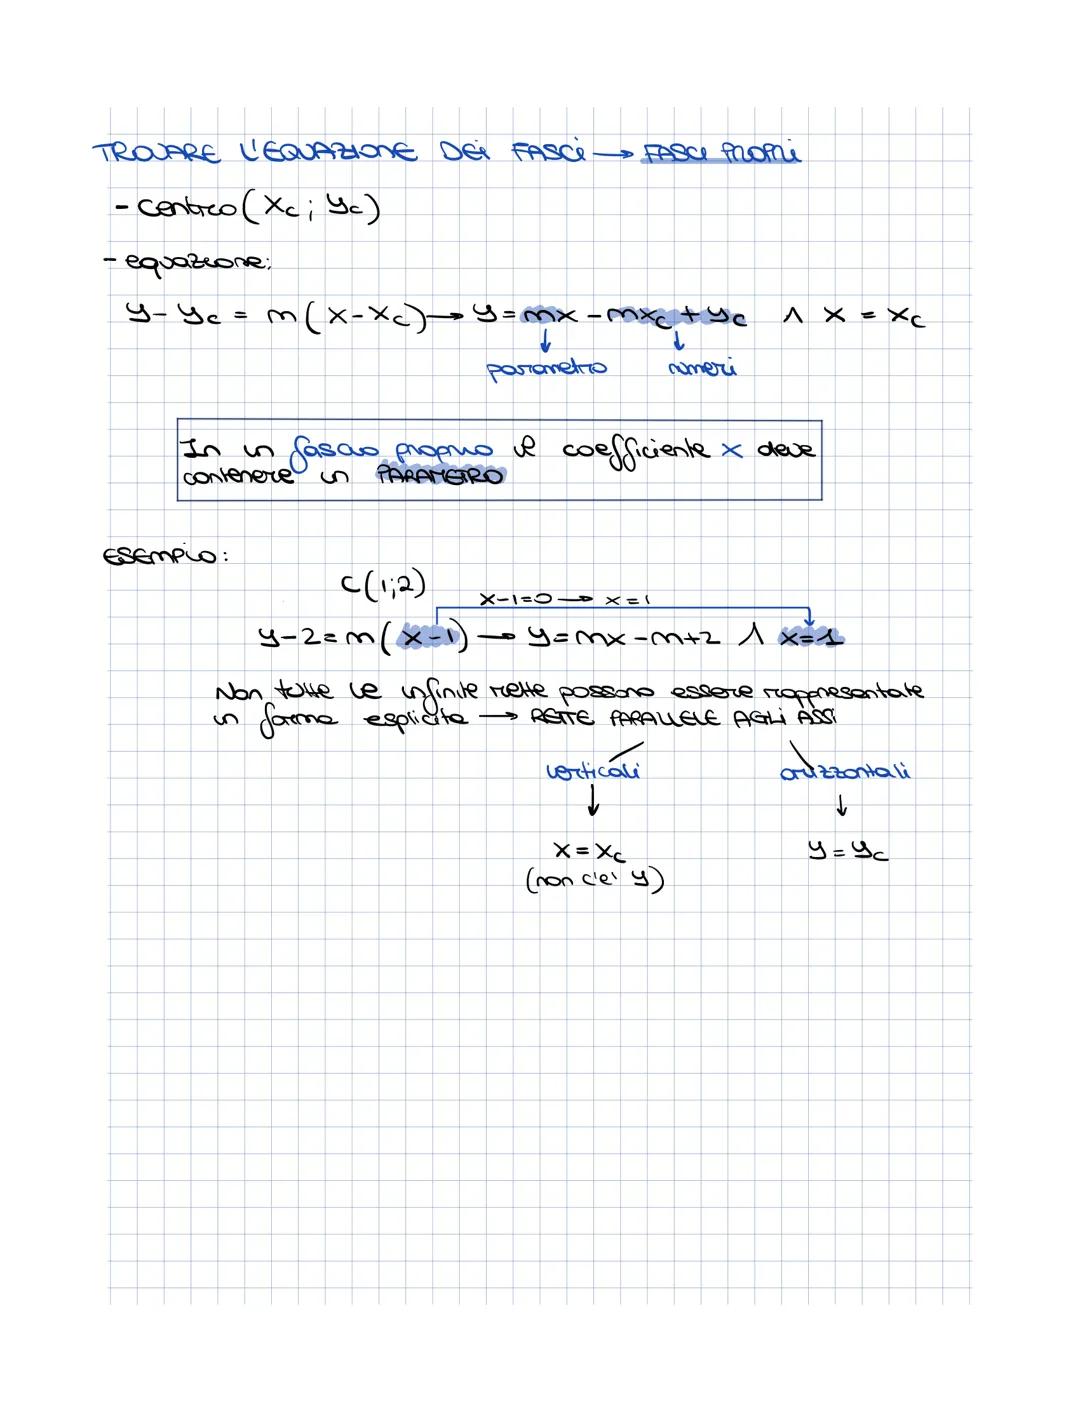 TROVARE L'EQUAZIONE DEI FASCI → FASCI PROPRI
- centro (xc; yc)
- equazione:
y - yc = m(x - xc) → y = mx - mxc + yc ∧ x = xc
parametro numeri
In un fascio proprio il coefficiente x deve
contenere un PARAMETRO
ESEMPIO:
C(1;2)
x-1=0 → x=1
y-2=m(x-1) → y=mx-m+2 ∧ x=1
Non tutte le infinite rette possono essere rappresentate
in forma esplicita → RETTE PARALLELE AGLI ASSI
verticali orizzontali
↓ ↓
x = xc y = yc
(non c'e' y)